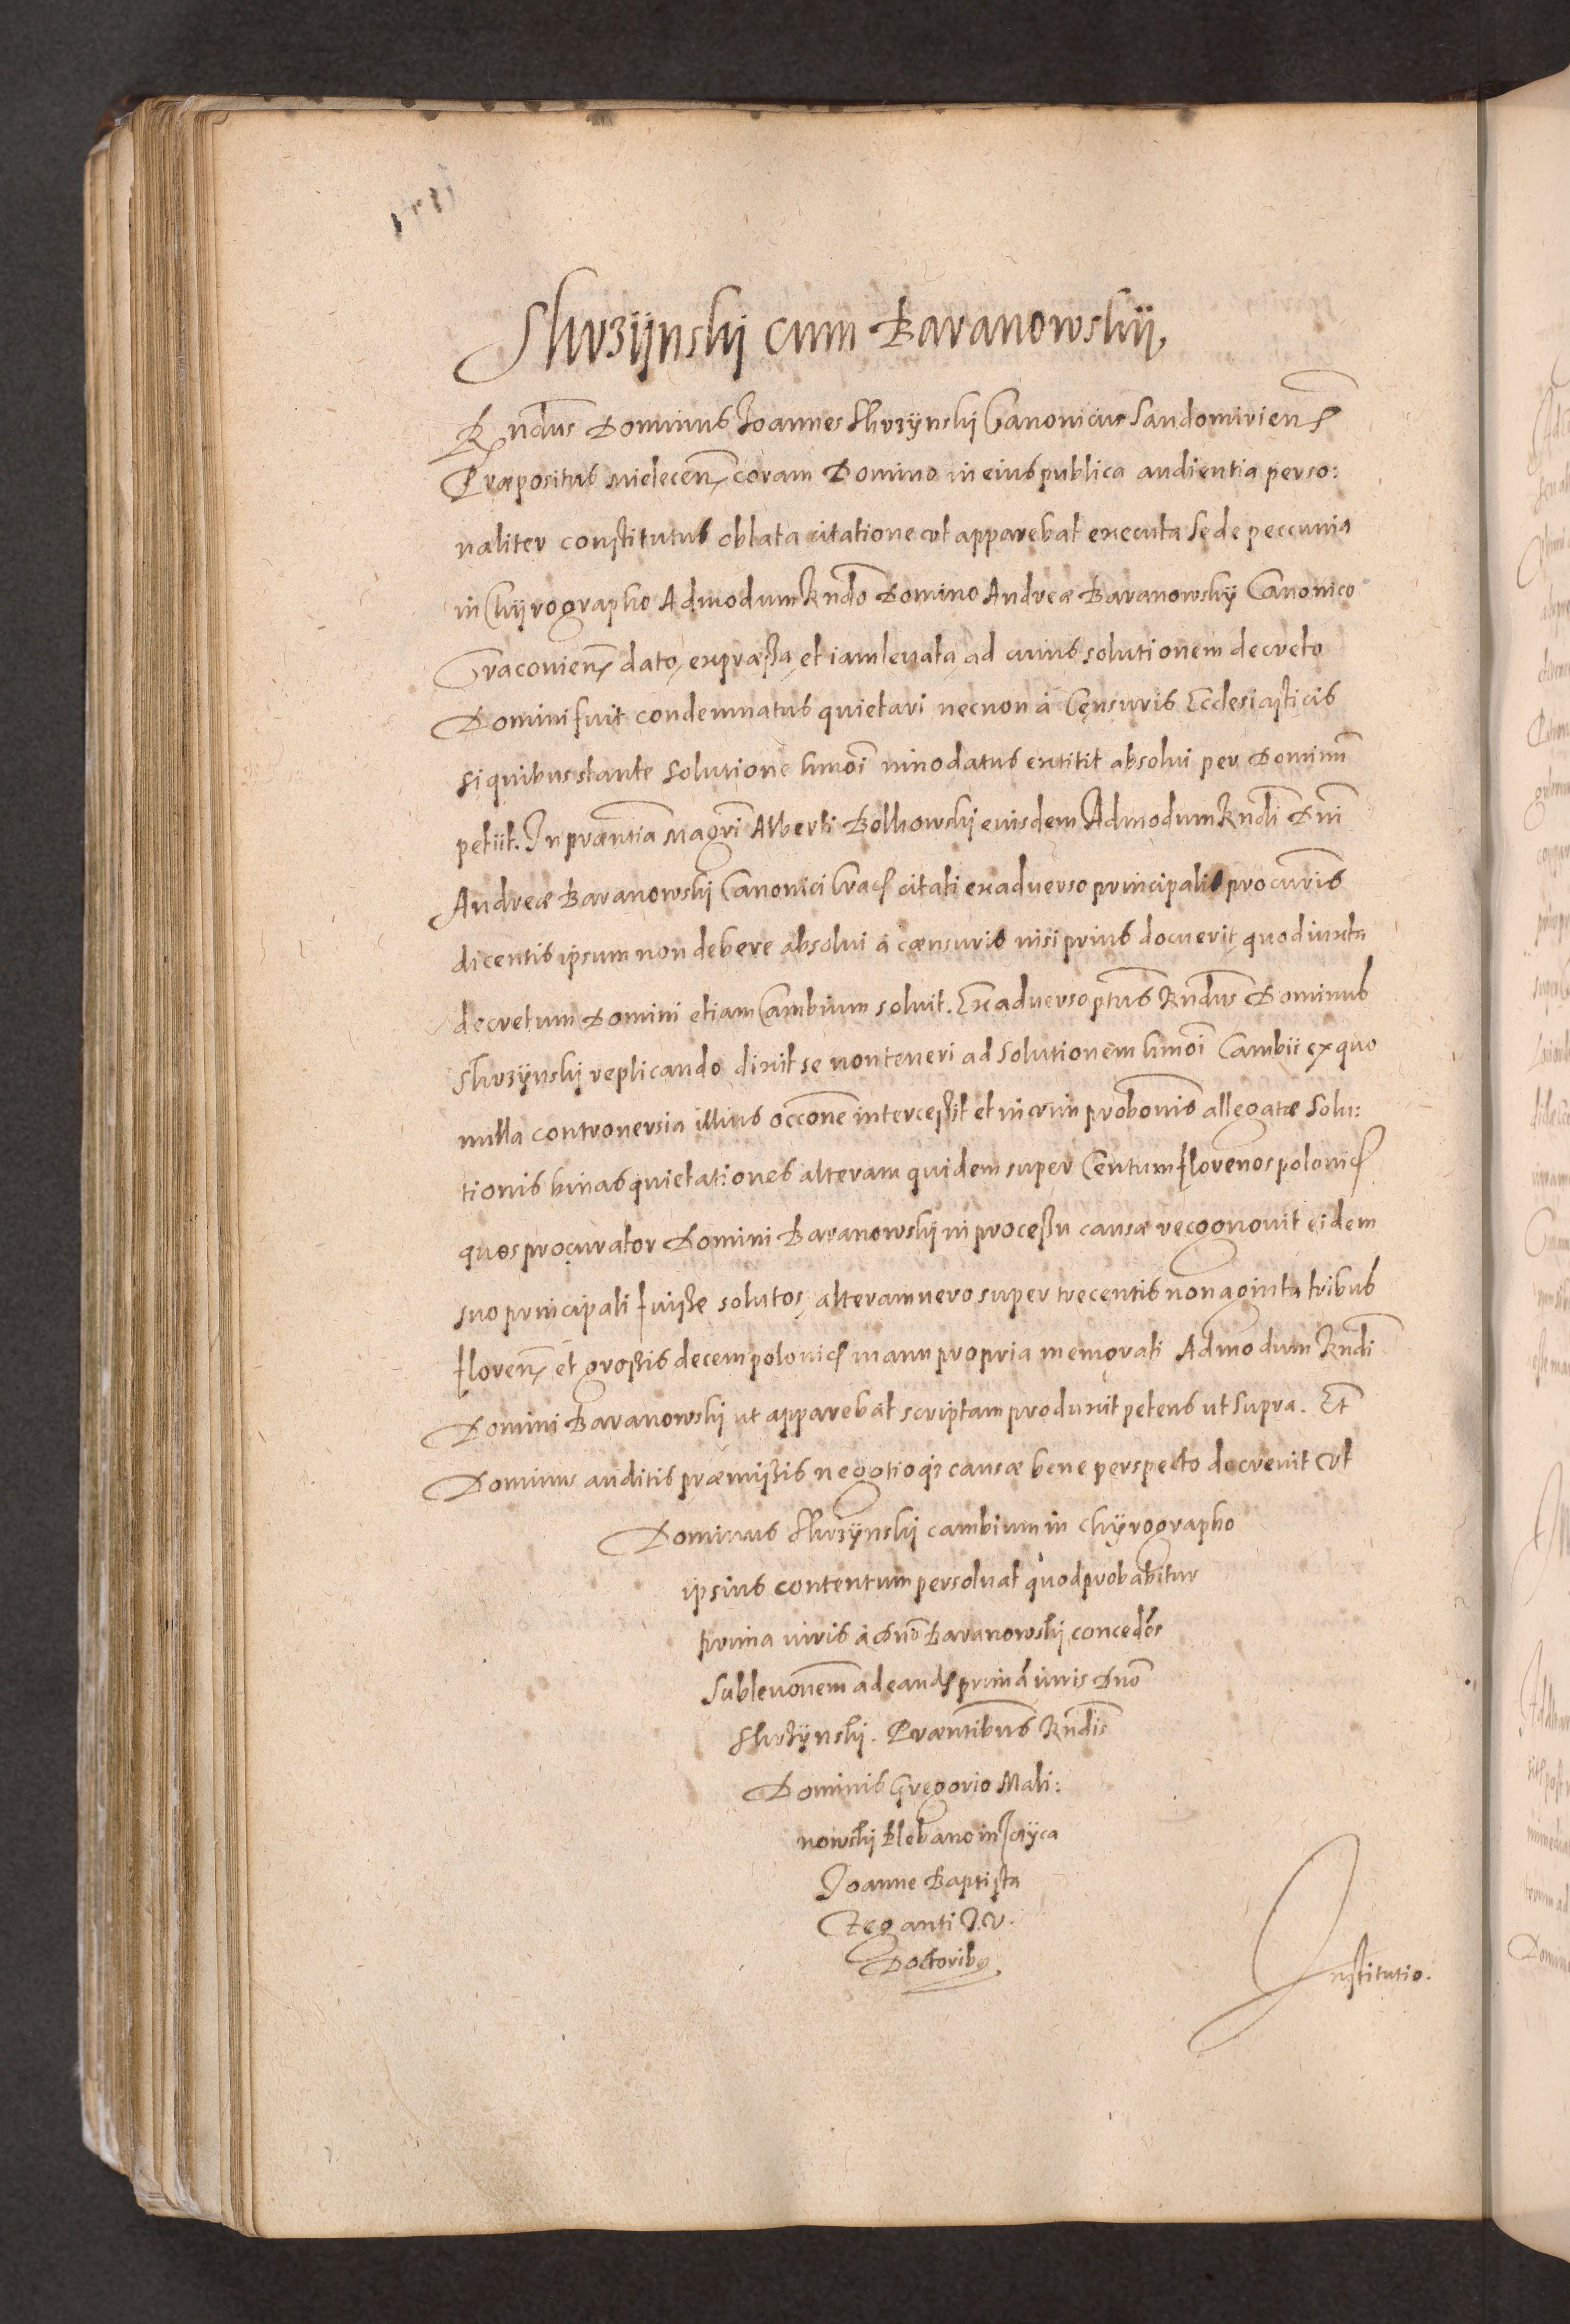 Skrzÿnskj cum Baranowskij,
Rndus Dominus Joannes Skrzÿnskj Canonicus Sandomirien̄
Præpositus Mielecen̄ coram Domino in eius publica audientia perso:
naliter constitutus oblata citatione ut apparebat executa se de peccunia
in Chÿrographo Admodum Rndo Domino Andreæ Baranowskÿ Canonico
Cracovien̄ dato, expræssa, et iam leuata, ad cuius solutionem decreto
Domini fuit condemnatus quietari necnon à Censuris Ecclesiasticis
si quibus stante solutione hmoi innodatus extitit absolui per Dominū
petiit. In præntia Magri Alberti Bolkowskj eiusdem Admodum Rndi Dni
Andreæ Baranowskj Canonici Crac̄ citati ex aduerso principalis procuris
dicentis ipsum non debere absolui à cænsuris nisi prius docuerit, quod iuxta
decretum Domini etiam Cambium soluit. Ex aduerso ptus Rndus Dominus
Skrzÿnskj replicando dixit se non teneri ad solutionem hmoi Cambii ex quo
nulla controuersia illius occone intercessit et in vim probonis allegatæ solu:
tionis binas quietationes alteram quidem super Centum florenos polonic̄
quos procurator Domini Baranowskj in processu causæ recognouit eidem
suo principali fuisse solutos, alteram uero super trecentis nonaginta tribus
floren̄ et grossis decem polonic̄ manu propria memorati Admodum Rndi
Domini Baranowskj ut apparebat scriptam produxit petens ut supra. Et
Dominus auditis præmissis negotioq3 causæ bene perspecto decreuit vt
Dominus Skrzÿnskj cambium in chÿrographo
ipsius contentum persoluat quod probabitur
prima iuris à Dno Baranowskj, conceden̄s
subleuonem ad eand̄ primā iuris Dno
Skrzÿnskj. Præntibus Rndis
Dominis Gregorio Mali:
nowskj Plebano in
Joanne Baptista
Zeganti J.V.
Doctoribus
Institutio.